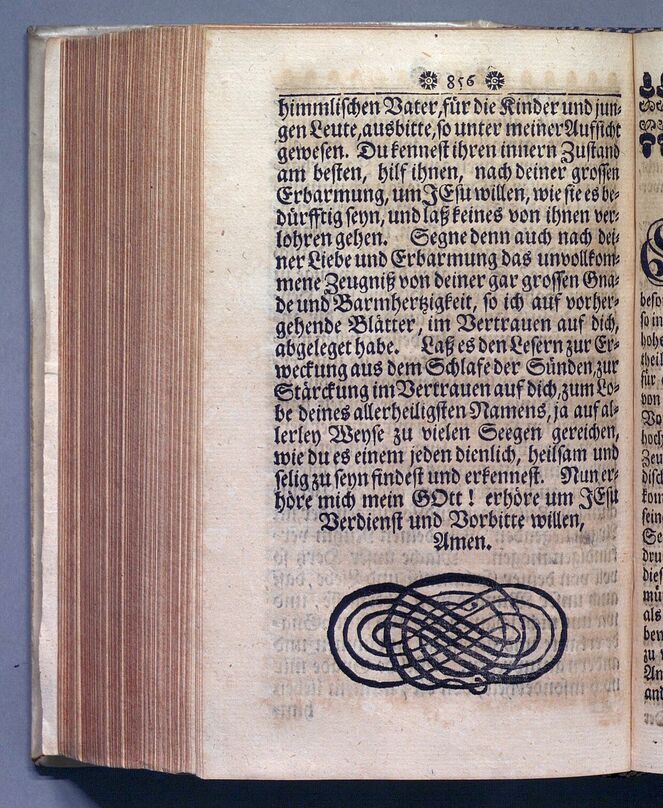 856
himmlischen Vater, für die Kinder und jun-
gen Leute, ausbitte, so unter meiner Aufsicht
gewesen. Du kennest ihren innern Zustand
am besten, hilf ihnen, nach deiner grossen
Erbarmung, um JEsu willen, wie sie es be-
dürfftig seyn, und laß keines von ihnen ver-
lohren gehen. Segne denn auch nach dei-
ner Liebe und Erbarmung das unvollkom-
mene Zeugniß von deiner gar grossen Gna-
de und Barmhertzigkeit, so ich auf vorher-
gehende Blätter, im Vertrauen auf dich,
abgeleget habe. Laß es den Lesern zur Er-
weckung aus dem Schlafe der Sünden, zur
Stärckung im Vertrauen auf dich, zum Lo-
be deines allerheiligsten Namens, ja auf al-
lerley Weyse zu vielen Seegen gereichen,
wie du es einem jeden dienlich, heilsam und
selig zu seyn findest und erkennest. Nun er-
höre mich mein GOtt! erhöre um JEsu
Verdienst und Vorbitte willen,
Amen.
beso
so in
hohe
theil
für
von
Vo
hoch
Zeu
disch
kom
sein
Se
dru
dies
mü
als
ben
zu
An
and